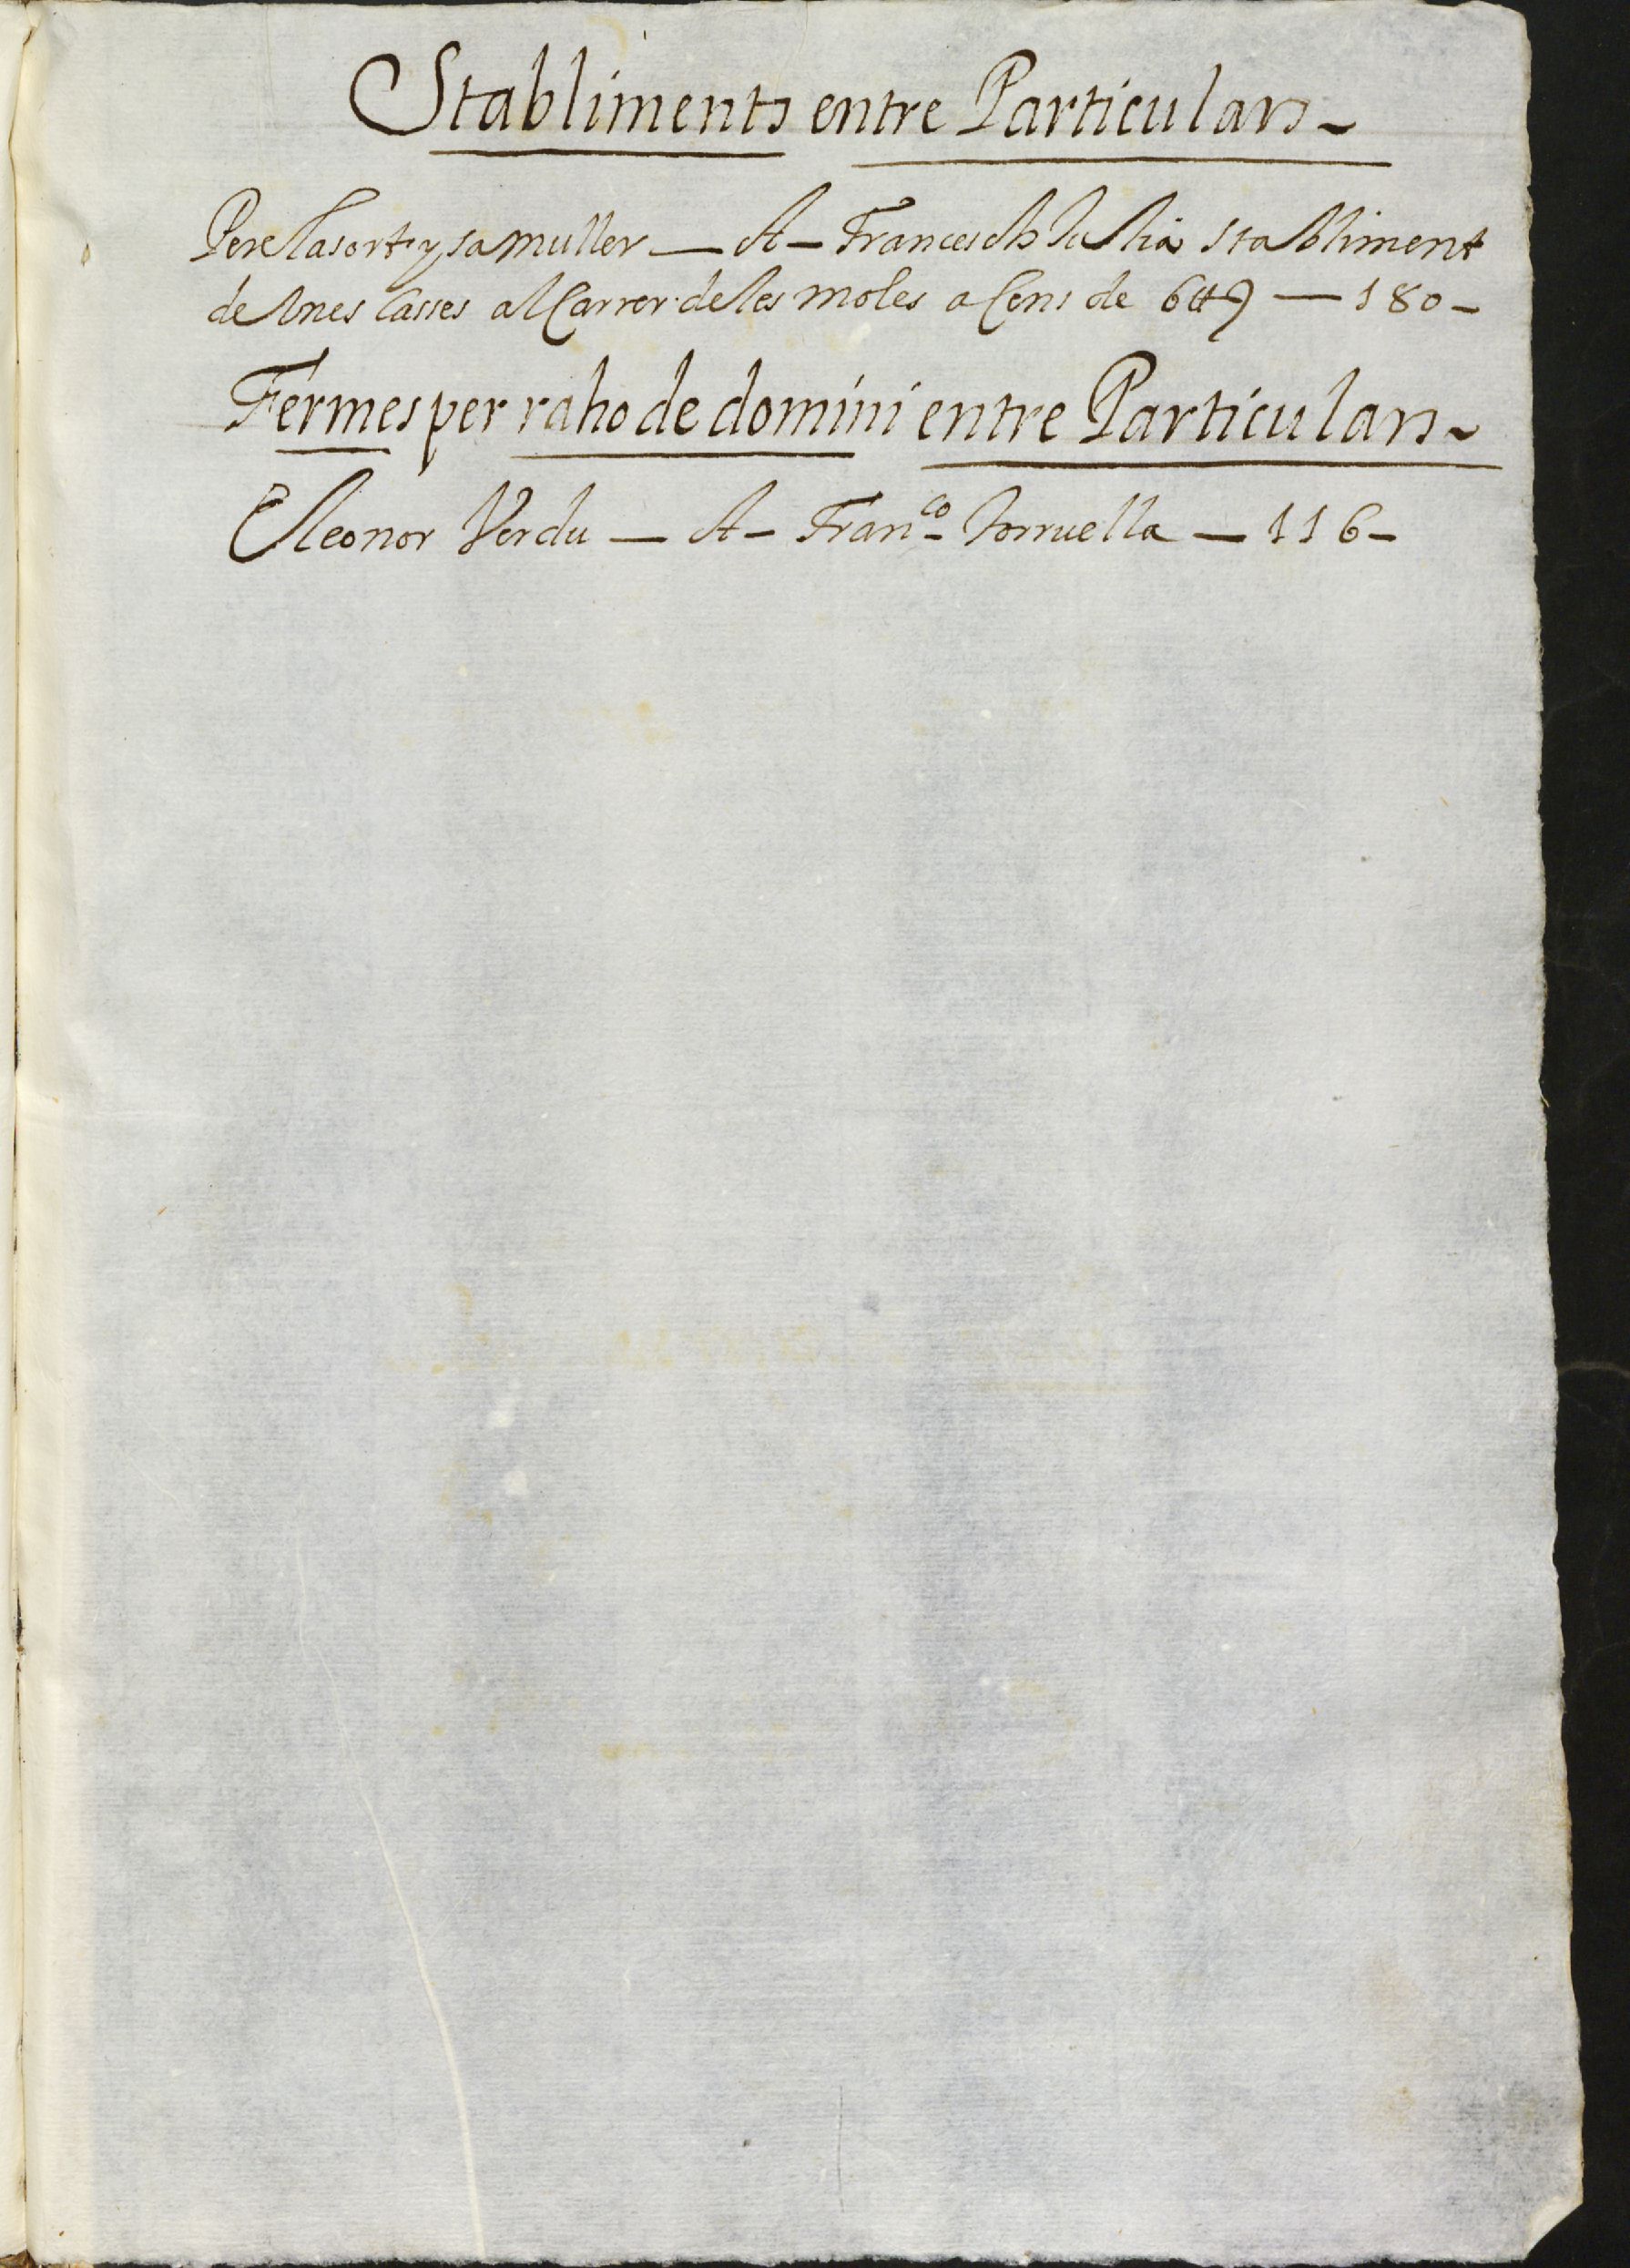 Stabliments entre Particulars
Pere Lasort y sa muller — A — Francesch Julia stabliment
de Unes Casses al Carrer de les moles a Cens de 6 ⁖ — 180 —
Fermes per raho de domini entre Particulars
Eleonor Verdu — A — Fran.co Torruella — 116 —